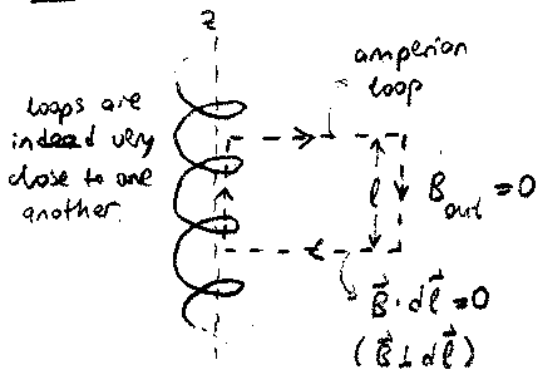 z
amperian
loop
loops are
indeed very
close to one
another.
l
B⃗out = 0
B⃗ · dl⃗ = 0
(B⃗ ⊥ dl⃗)